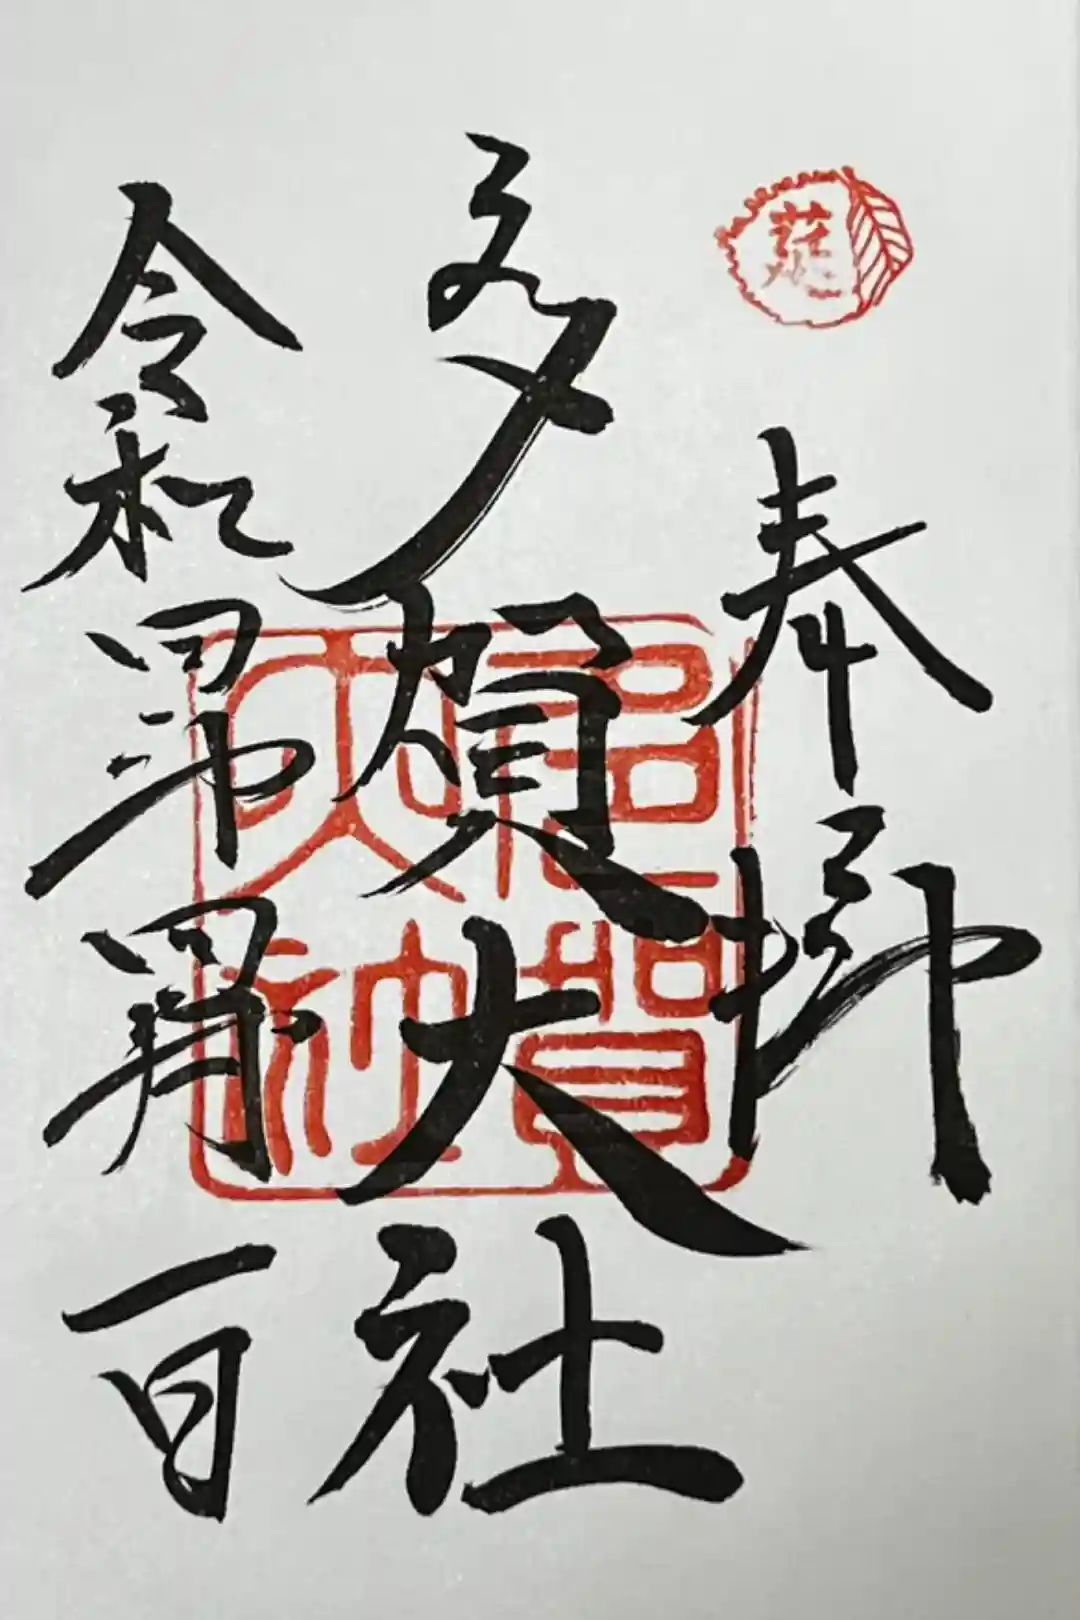 奉拝
多賀大社
令和四年四月一日
多賀大社
莚